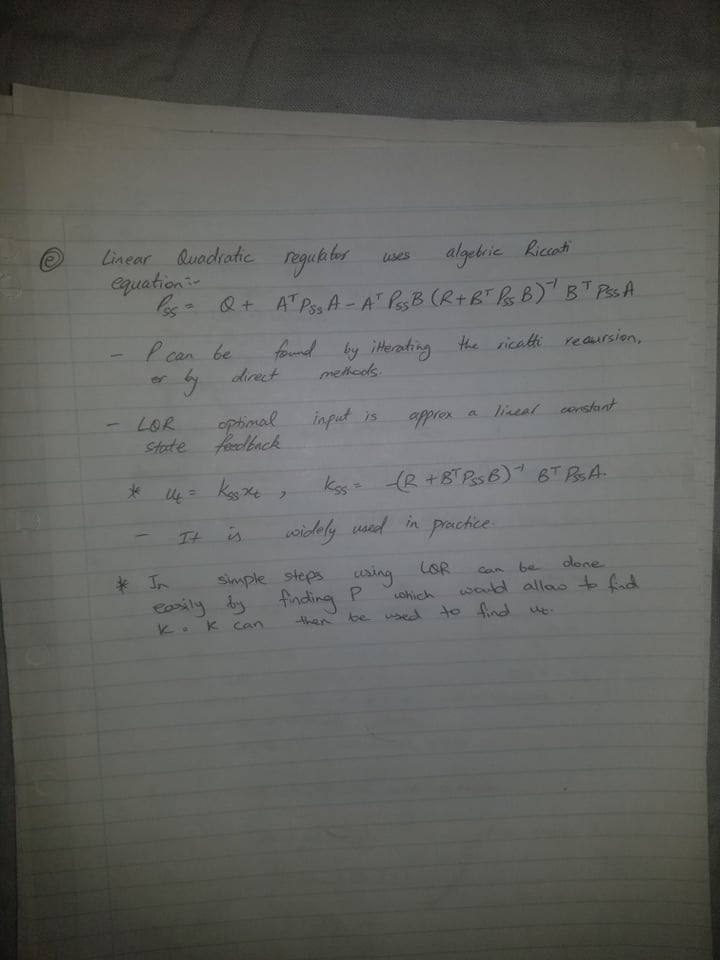 ⓔ Linear Quadratic regulator uses algebric Riccati
equation:-
Pss = Q + AᵀPssA - AᵀPssB (R+BᵀPssB)⁻¹ BᵀPssA
- P can be found by itterating the ricatti recursion,
or by direct methods.
- LQR optimal input is approx a linear constant
state feedback
* ut = kssxt , kss = -(R + BᵀPssB)⁻¹ BᵀPssA.
- It is widely used in practice.
* In simple steps using LQR can be done
easily by finding P which would allow to find
K. K can then be used to find ut.